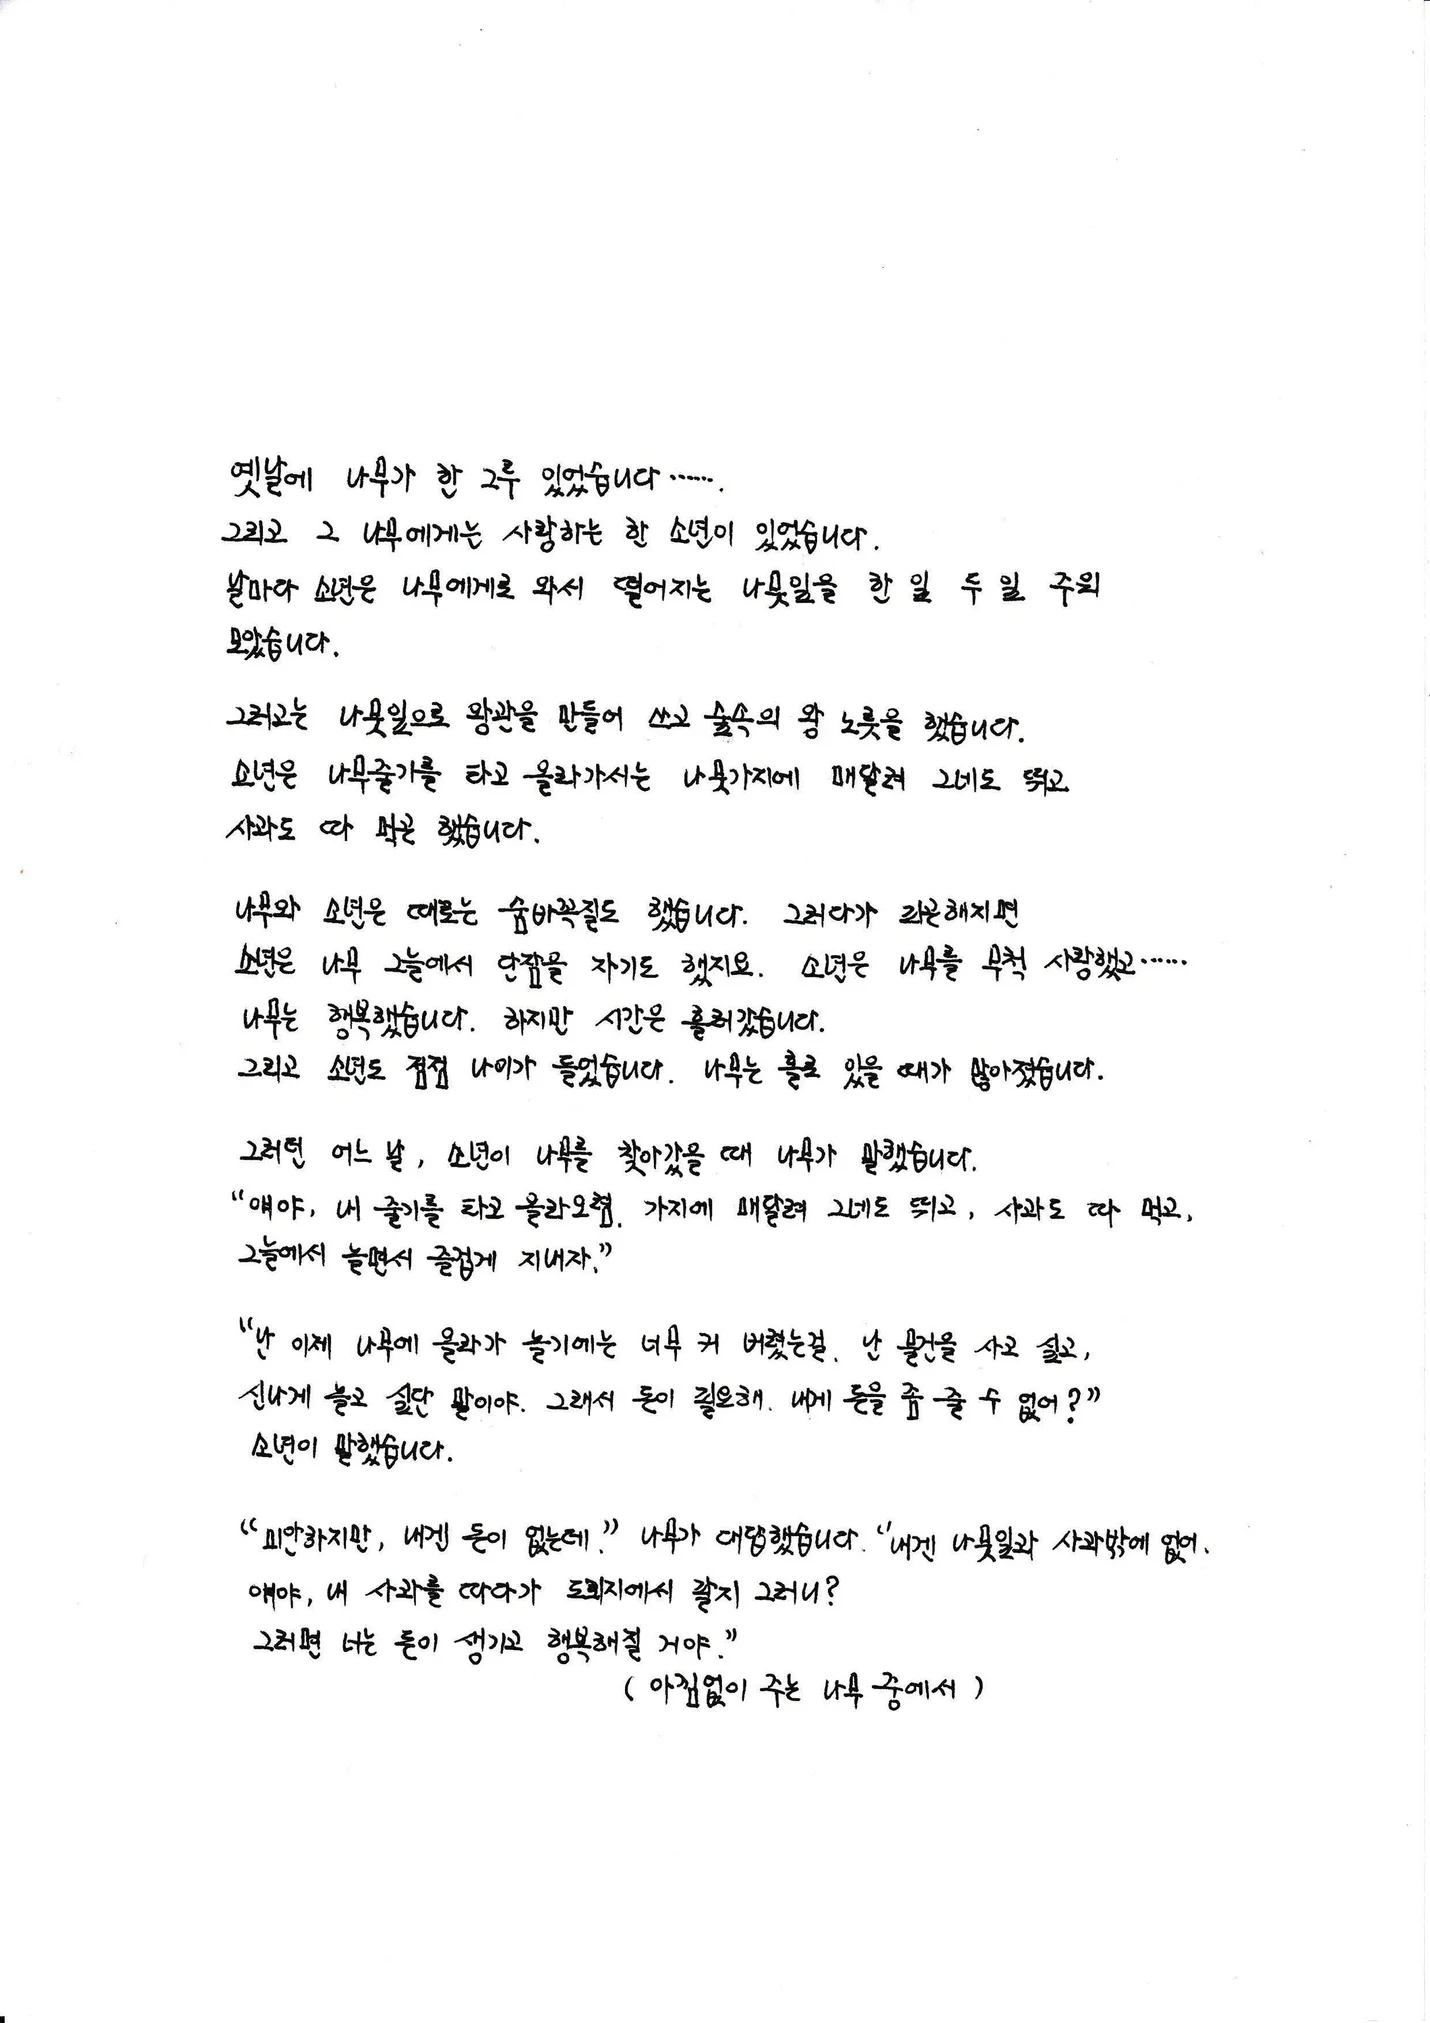 옛날에 나무가 한 그루 있었습니다‥‥‥.
그리고 그 나무에게는 사랑하는 한 소년이 있었습니다.
날마다 소년은 나무에게로 와서 떨어지는 나뭇잎을 한 잎 두 잎 주워
모았습니다.
그러고는 나뭇잎으로 왕관을 만들어 쓰고 숲속의 왕 노릇을 했습니다.
소년은 나무줄기를 타고 올라가서는 나뭇가지에 매달려 그네도 뛰고
사과도 따 먹곤 했습니다.
나무와 소년은 때로는 숨바꼭질도 했습니다. 그러다가 피곤해지면
소년은 나무 그늘에서 단잠을 자기도 했지요. 소년은 나무를 무척 사랑했고‥‥‥
나무는 행복했습니다. 하지만 시간은 흘러갔습니다.
그리고 소년도 점점 나이가 들었습니다. 나무는 홀로 있을 때가 많아졌습니다.
그러던 어느 날, 소년이 나무를 찾아갔을 때 나무가 말했습니다.
“얘야, 내 줄기를 타고 올라오렴. 가지에 매달려 그네도 뛰고, 사과도 따 먹고,
그늘에서 놀면서 즐겁게 지내자.”
“난 이제 나무에 올라가 놀기에는 너무 커 버렸는걸. 난 물건을 사고 싶고,
신나게 놀고 싶단 말이야. 그래서 돈이 필요해. 내게 돈을 좀 줄 수 없어?”
소년이 말했습니다.
“미안하지만, 내겐 돈이 없는데.” 나무가 대답했습니다. “내겐 나뭇잎과 사과밖에 없어.
얘야, 내 사과를 따다가 도회지에서 팔지 그러니?
그러면 너는 돈이 생기고 행복해질 거야.”
(아낌없이 주는 나무 중에서)